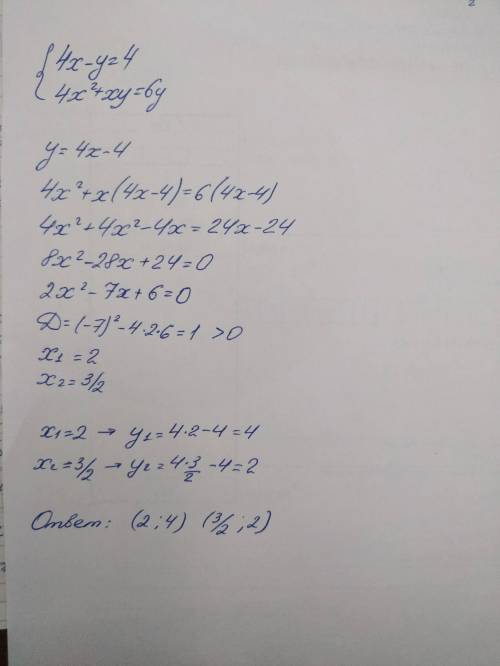 4x-y=4
4x²+xy=6y
y=4x-4
4x²+x(4x-4)=6(4x-4)
4x²+4x²-4x=24x-24
8x²-28x+24=0
2x²-7x+6=0
D=(-7)²-4·2·6=1 >0
x₁=2
x₂=3/2
x₁=2 → y₁=4·2-4=4
x₂=3/2 → y₂=4·3/2-4=2
Ответ: (2;4) (3/2;2)